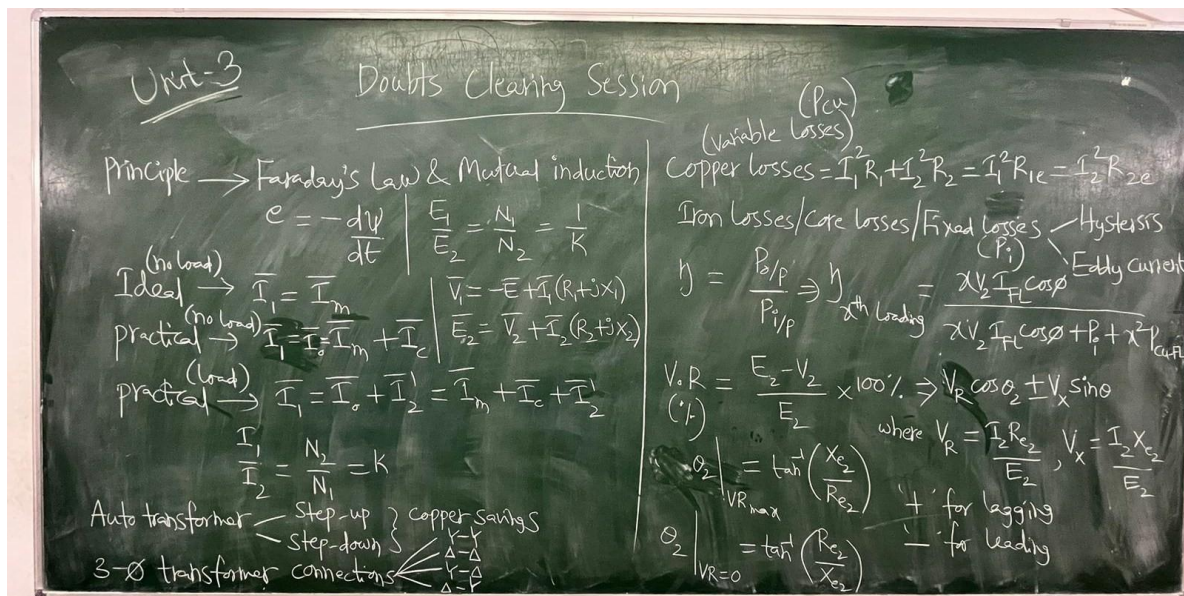 Unit-3
Doubts Clearing Session
Principle → Faraday's Law & Mutual induction
e = -dψ/dt | E₁/E₂ = N₁/N₂ = 1/K
(no load)
Ideal → I̅₁ = I̅m
V̅₁ = -E + I̅₁(R₁+jX₁)
(no load)
practical → I̅₁ = I̅₀ = I̅m + I̅c
E̅₂ = V̅₂ + I̅₂(R₂+jX₂)
(load)
practical → I̅₁ = I̅₀ + I̅₂' = I̅m + I̅c + I̅₂'
I₁/I₂ = N₂/N₁ = K
Auto transformer < Step-up
Step-down } copper savings
3-Ø transformer connections
Y-Y
Δ-Δ
Y-Δ
Δ-Y
(Pcu)
(variable losses)
Copper losses = I₁²R₁ + I₂²R₂ = I₁²R₁e = I₂²R₂e
Iron losses/core losses/Fixed losses
(Pi)
Hystersis
Eddy current
η = Po/p / Pi/p ⇒ η xth loading = xV₂I_FL cosø / xV₂I_FL cosø + Pi + x²Pcu-FL
V.R = E₂-V₂ / E₂ × 100% ⇒ V_R cosθ₂ ± Vₓ sinθ
(%)
where V_R = I₂Re₂/E₂, Vₓ = I₂Xe₂/E₂
θ₂ | VRmax = tan⁻¹(Xe₂/Re₂)
'+' for lagging
θ₂ | VR=0 = tan⁻¹(Re₂/Xe₂)
'-' for leading